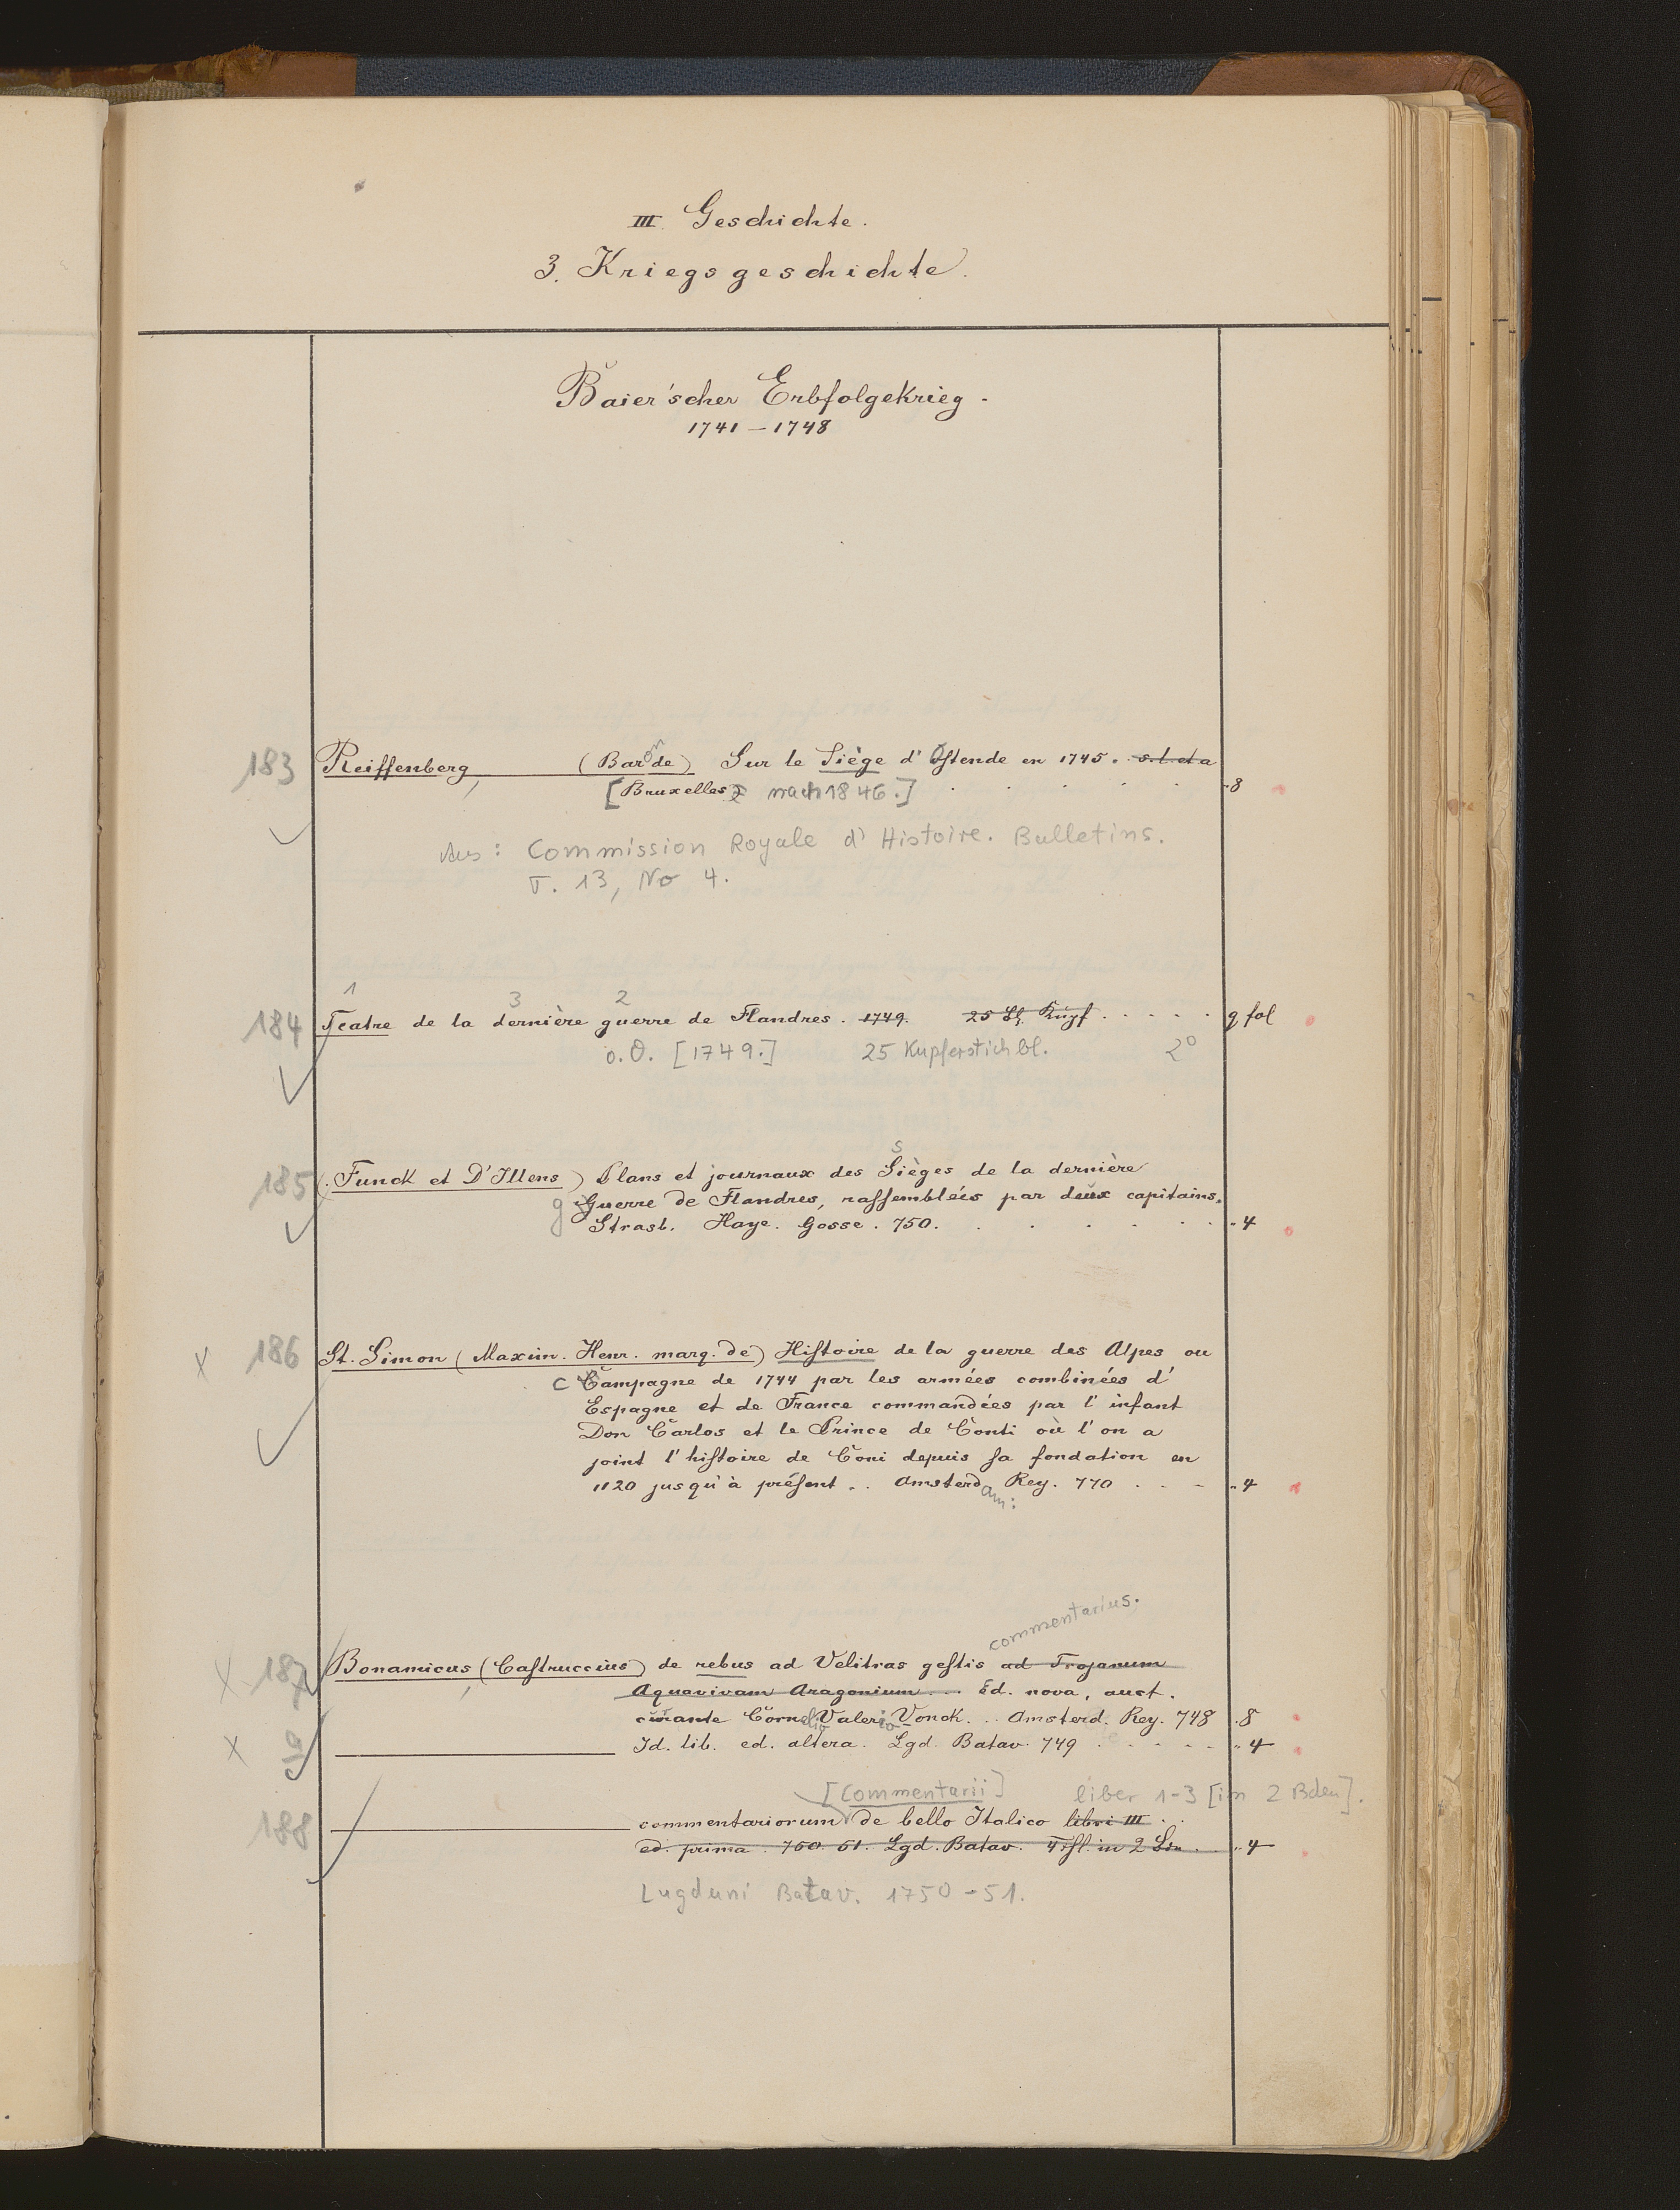 III Geschichte.
3. Kriegsgeschichte.
Baier'scher Erbfolgekrieg.
1741 – 1748
183 Reiffenberg, (Baron de) Sur le Siège d'Ostende en 1745. s. l. et a
[Bruxelles nach 1846.] . . . . . 8
Aus: Commission Royale d'Histoire. Bulletins.
T. 13, No 4.
1 3 2
184 Teatre de la dernière guerre de Flandres. 1749. 25 Bl. Kupf. . . . . g fol
o. O. [1749.] 25 Kupferstichbl. 2°
185 (Funck et D'Illens) Plans et journaux des Sièges de la dernière
g Guerre de Flandres, raſsemblées par deux capitains.
Strasb. Haye. Gosse. 750. . . . . . 4
x 186 St. Simon (Maxim. Henr. marq. de) Hiſtoire de la guerre des Alpes ou
c Campagne de 1744 par les armées combinées d'
Espagne et de France commandées par l'infant
Don Carlos et le Prince de Conti où l'on a
joint l'hiſtoire de Coni depuis ſa fondation en
1120 jusqu'à préſent .. Amsterdam: Rey. 770 . . . 4
commentarius.
x 187 Bonamicus, (Caſtruccius) de rebus ad Velitras geſtis ad Trojanum
Aquavivam Aragonium ... Ed. nova, auct.
curante Cornelio Valerio Vonck. .. Amsterd. Rey. 748 . 8
x a Id. lib. ed. altera. Lgd. Batav. 749 . . . . . 4
[Commentarii] liber 1-3 [in 2 Bden].
188 commentariorum de bello Italico libri III . .
ed. prima. 750. 51. Lgd. Batav. in 2 . . 4
Lugduni Batav. 1750-51.